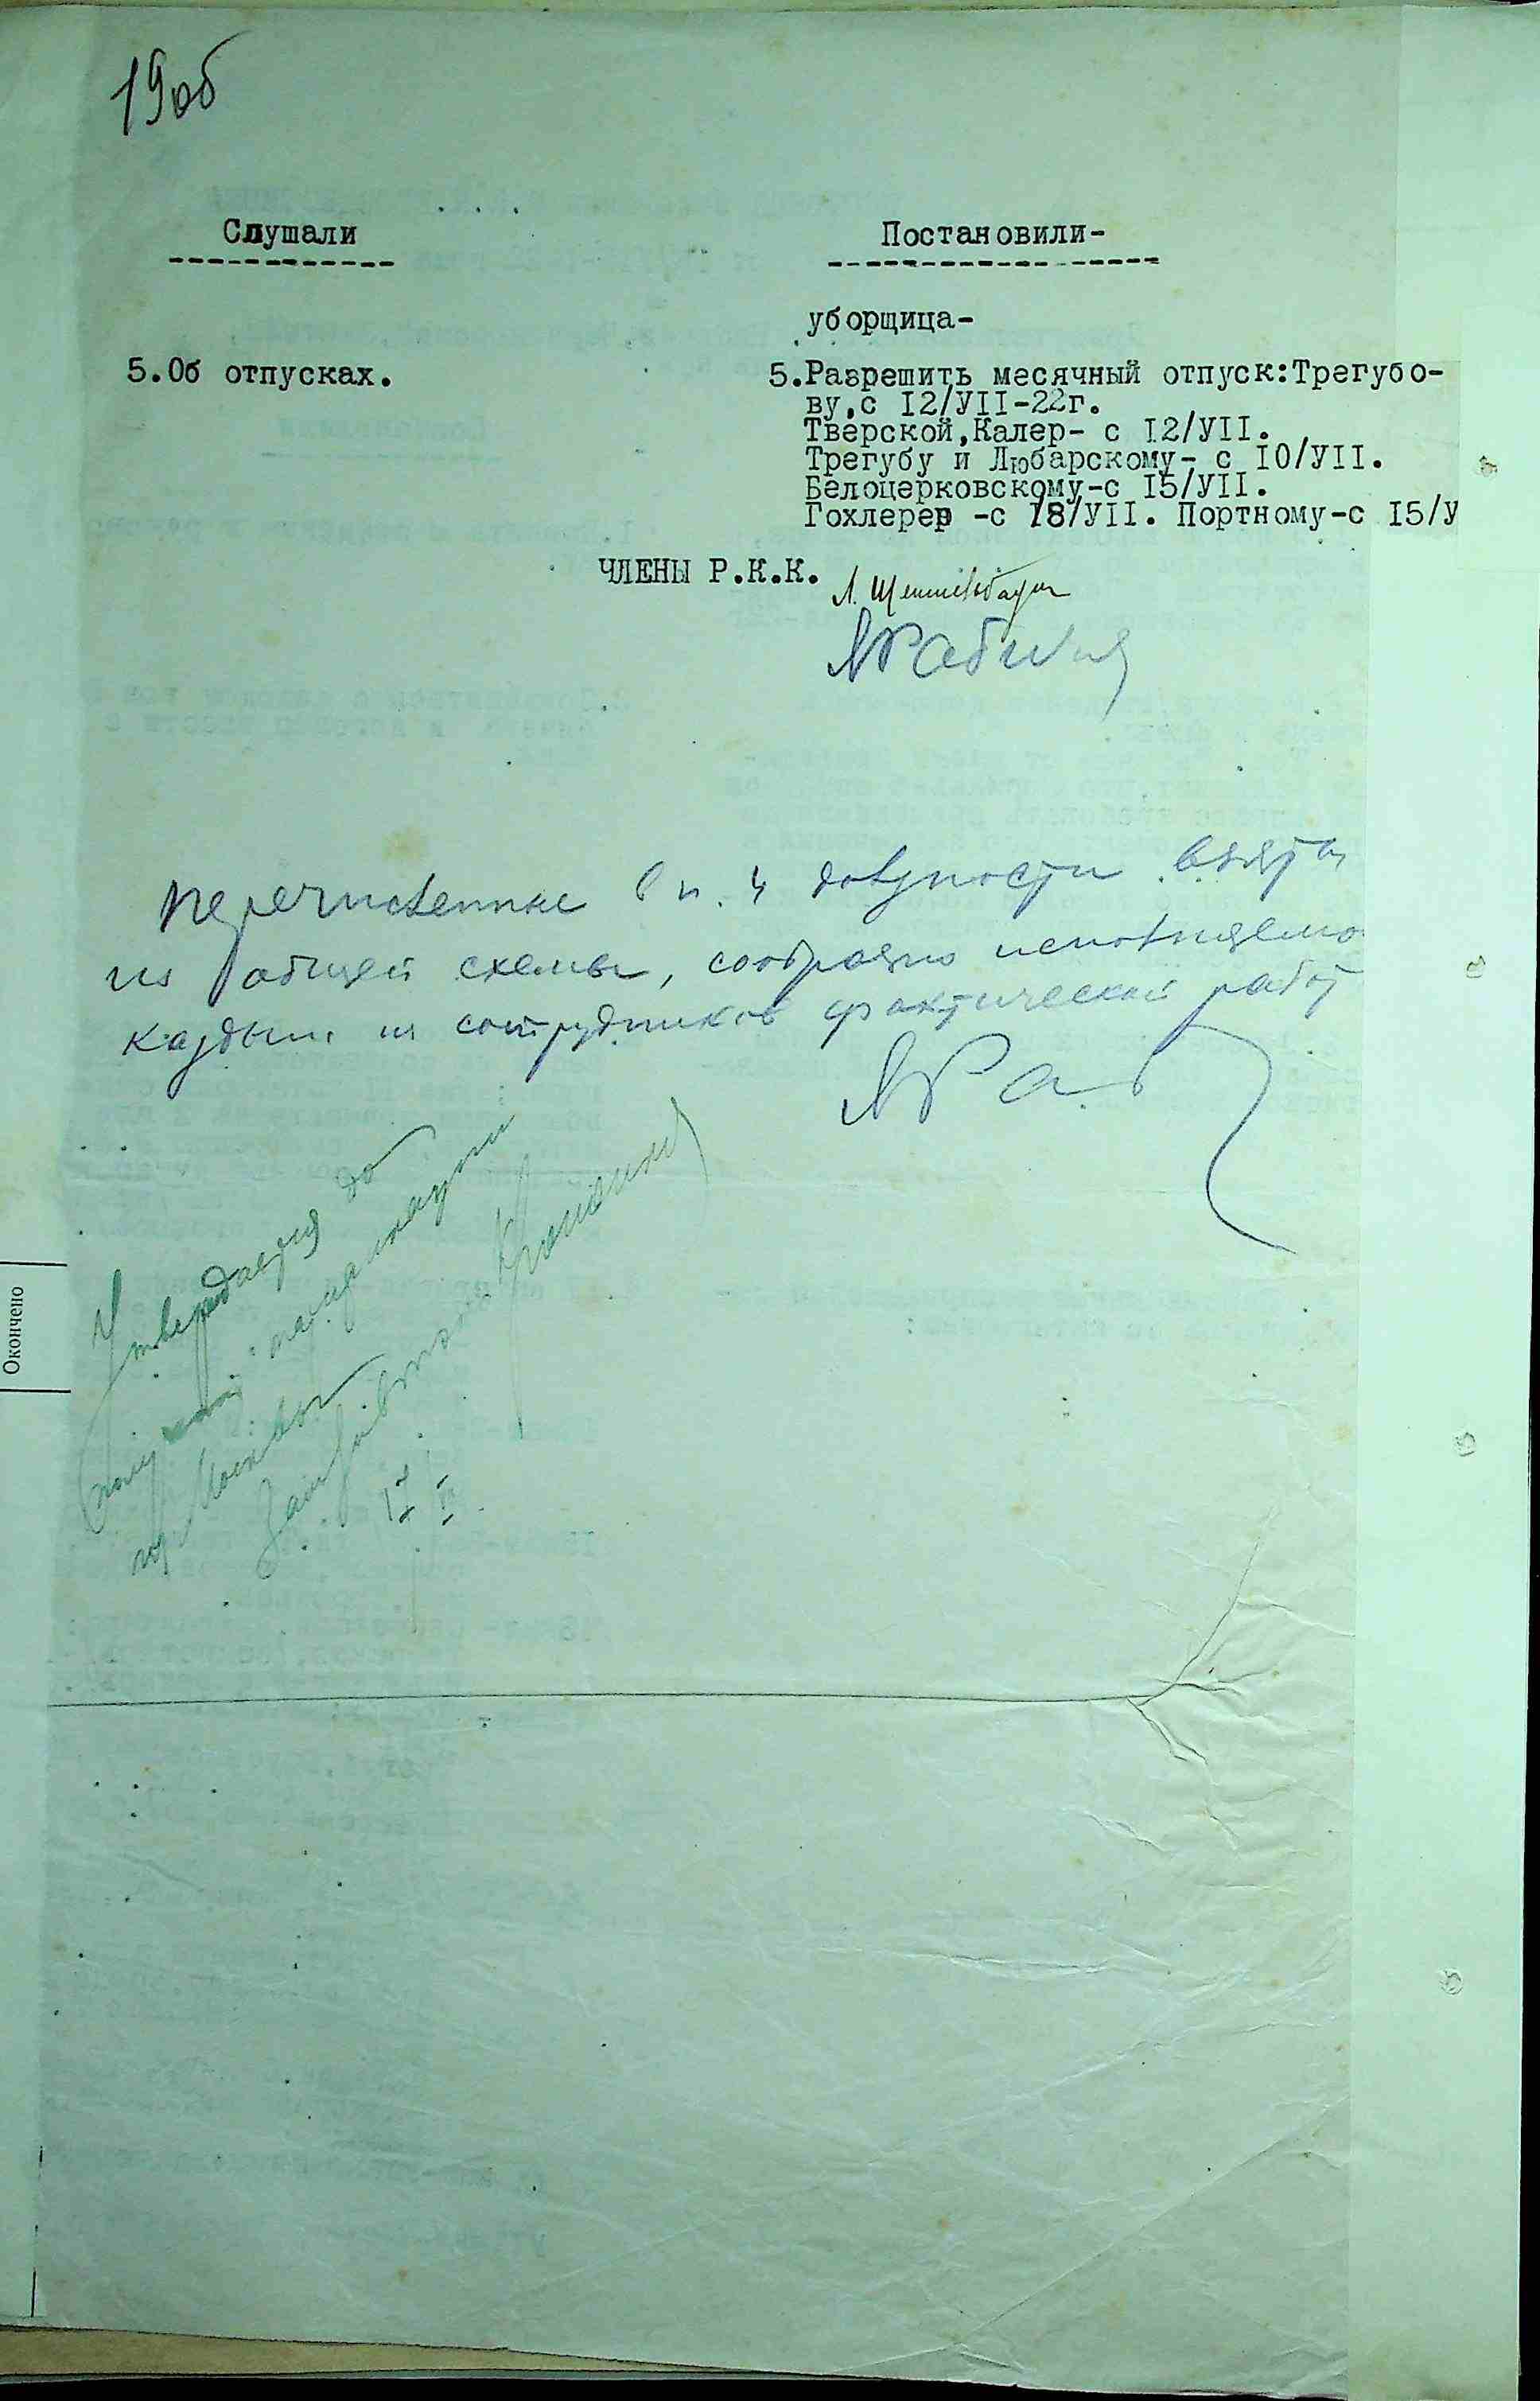 19об
Слушали
Постановили-
уборщица-
5.Об отпусках.
5.Разрешить месячный отпуск:Трегубо-
ву,с 12/УII-22г.
Тверской,Калер- с 12/УII.
Трегубу и Любарскому- с 10/УII.
Белоцерковскому-с 15/УII.
Гохлерер -с 18/УII. Портному-с 15/У
ЧЛЕНЫ Р.К.К.
Перечисленные в п. 4 должности взяты
из общей схемы, сообразно исполняемо
каждым из сотрудников фактической работ
Утверждается до
Москвы
17/VII
Окончено